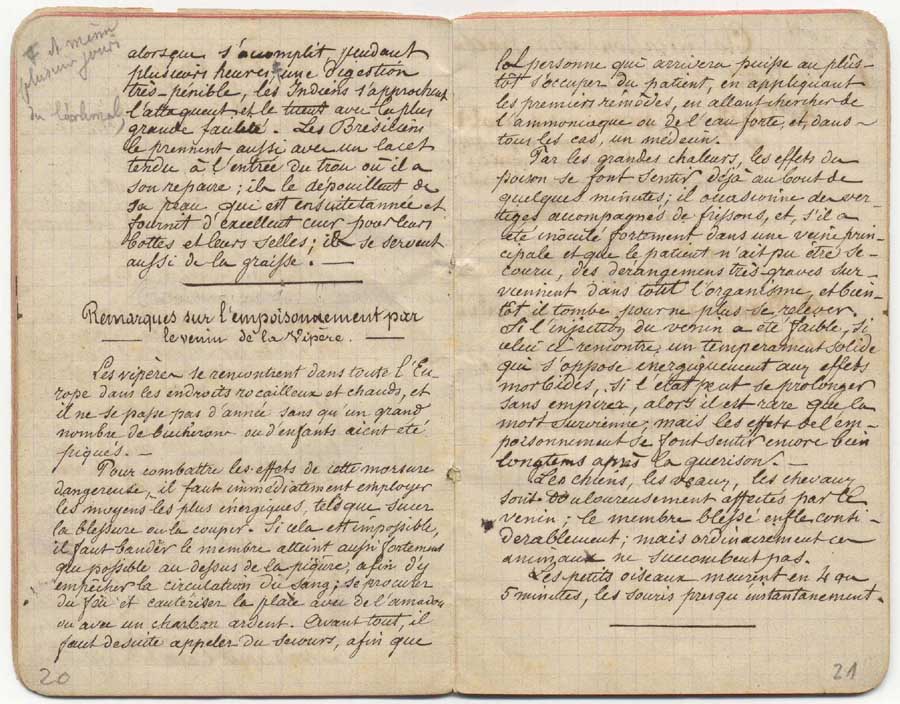 alorsque s'accomplit, pendant
plusieurs heures, une digestion
très-pénible, les Indiens s'approchent
l'attaquent et le tuent avec la plus
grande facilité. Les Brésiliens
le prennent aussi avec un lacet
tendu à l'entrée du trou où il a
son repaire; ils le dépouillent de
sa peau qui est ensuite tannée et
fournit d'excellent cuir pour leurs
bottes et leurs selles; ils se servent
aussi de la graisse. —
et même
plusieurs jours
Remarques sur l'empoisonnement par
le venin de la Vipère.
Les vipères se rencontrent dans toute l'Eu-
rope dans les endroits rocailleux et chauds, et
il ne se passe pas d'année sans qu'un grand
nombre de bucherons ou d'enfants aient été
piqués. —
Pour combattre les effets de cette morsure
dangereuse, il faut immédiatement employer
les moyens les plus energiques, tels que sucer
la blessure ou la couper. Si cela est impossible,
il faut bander le membre atteint aussi fortement
que possible au dessus de la piqûre, afin d'y
empêcher la circulation du sang; se procurer
du feu et cautériser la place avec de l'amadou
ou avec un charbon ardent. Avant tout, il
faut desuite appeler du secours, afin que
20
la personne qui arrivera puisse au plus-
tôt s'occuper du patient, en appliquant
les premiers remèdes, en allant chercher de
l'ammoniaque ou de l'eau forte, et, dans
tous les cas, un médecin.
Par les grandes chaleurs, les effets du
poison se font sentir déjà au bout de
quelques minutes; il occasionne des ver-
tiges accompagnés de frissons, et, s'il a
été inoculé fortement dans une veine prin-
cipale et que le patient n'ait pu être se-
couru, des derangements très-graves sur-
viennent dans tout l'organisme, et bien-
tôt il tombe pour ne plus se relever.
Si l'injection du venin a été faible, si
celui ci rencontre un temperament solide
que s'oppose energiquement aux effets
morbides, si l'état peut se prolonger
sans empirer, alors il est rare que la
mort survienne; mais les effets de l'em-
poisonnement se font sentir encore bien
longtems après la guerison. —
Les chiens, les veaux, les chevaux
sont douloureusement affectés par le
venin; le membre blessé enfle consi-
dérablement; mais ordinairement ces
animaux ne succombent pas.
Les petits oiseaux meurent en 4 ou
5 minutes, les souris presqu'instantanement.
21